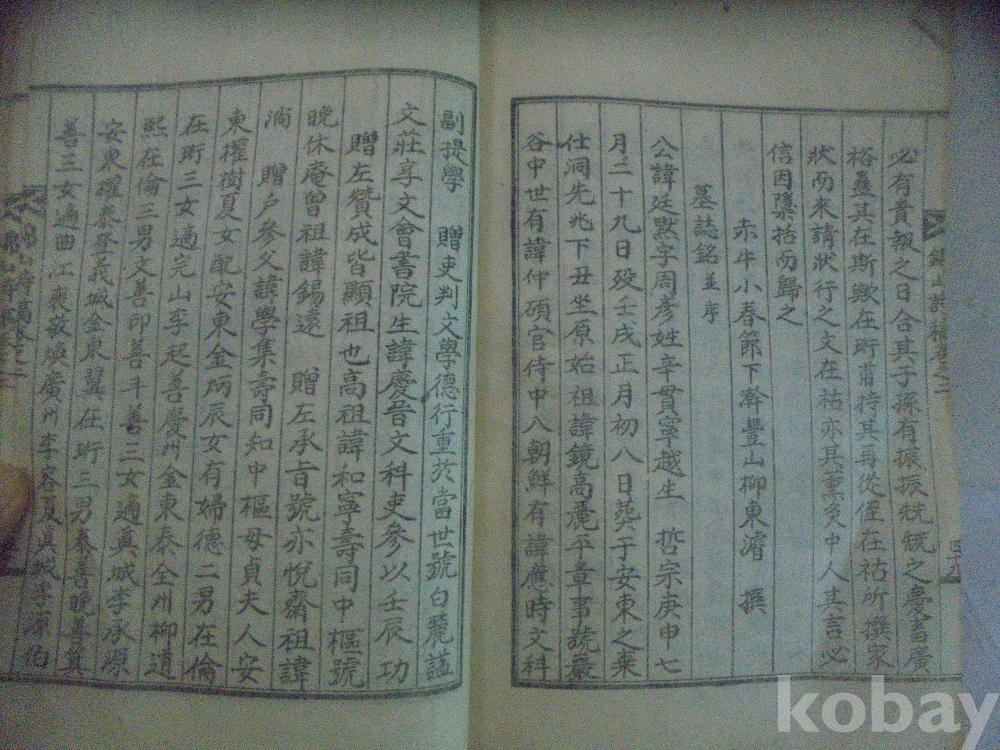 必有貴報之日合其子孫有振振兟兟之慶當廣
裕蠱其在斯歟在珩甫持其再從侄在祜所撰家
狀而來請狀行之文在祜亦其熏炙中人其言必
信因檃括而歸之
赤牛小春節下澣豐山柳東濬 撰
墓誌銘 並序
公諱廷默字周彥姓辛貫寧越生 哲宗庚申七
月二十九日歿壬戌正月初八日葬于安東之乘
仕洞先兆下丑坐原始祖諱鏡高麗平章事號巖
谷中世有諱仲碩官侍中入朝鮮有諱應時文科
副提學 贈吏判文學德行重於當世號白麓諡
文莊享文會書院生諱慶晋文科吏參以壬辰功
贈左贊成皆顯祖也高祖諱和寧壽同中樞號
晩休庵曾祖諱錫遠 贈左承旨號亦悅齋祖諱
滴 贈戶參父諱學集壽同知中樞母貞夫人安
東權樹夏女配安東金炳辰女有婦德二男在倫
在珩三女適完山李起善慶州金東泰全州柳道
熙在倫三男文善卽善斗善三女適眞城李承原
安東權泰奎義城金東翼在珩三男泰善晩善箕
善三女適曲江裵敬煥廣州李容夏眞城李源伯
kobay